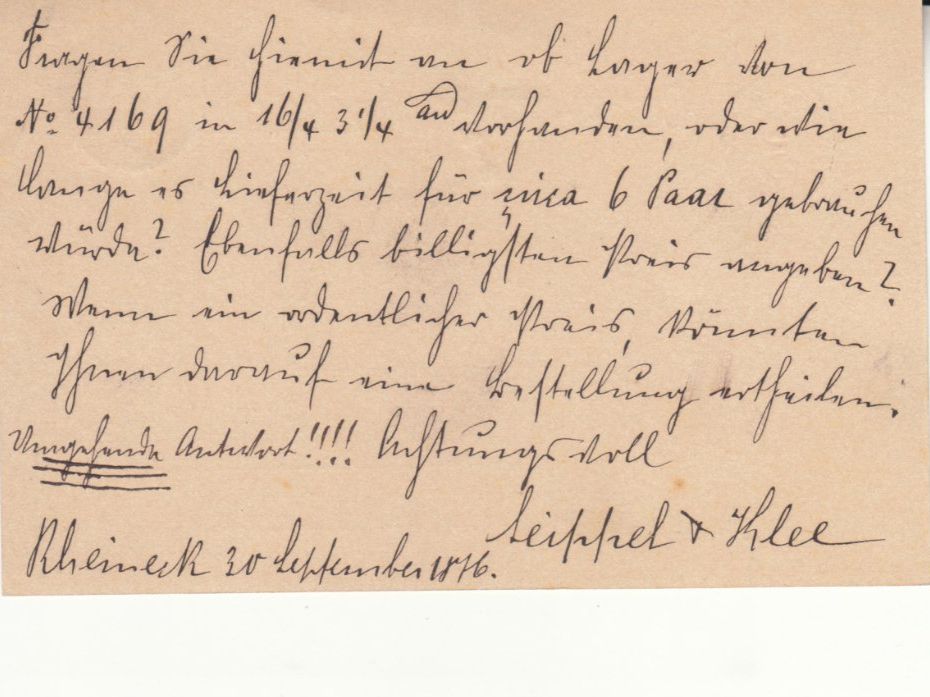 Fragen Sie hiemit an ob Lager von
No. 4169 in 16/4 3 1/4 vorhanden, oder wie
lange es Lieferzeit für circa 6 Paar gebrauchen
würde? Ebenfalls billigsten Preis angeben?
Wenn ein ordentlicher Preis, könnten
Ihnen darauf eine Bestellung ertheilen.
Umgehende Antwort!!!! Achtungsvoll
& Klee
Rheineck 30 September 1876.